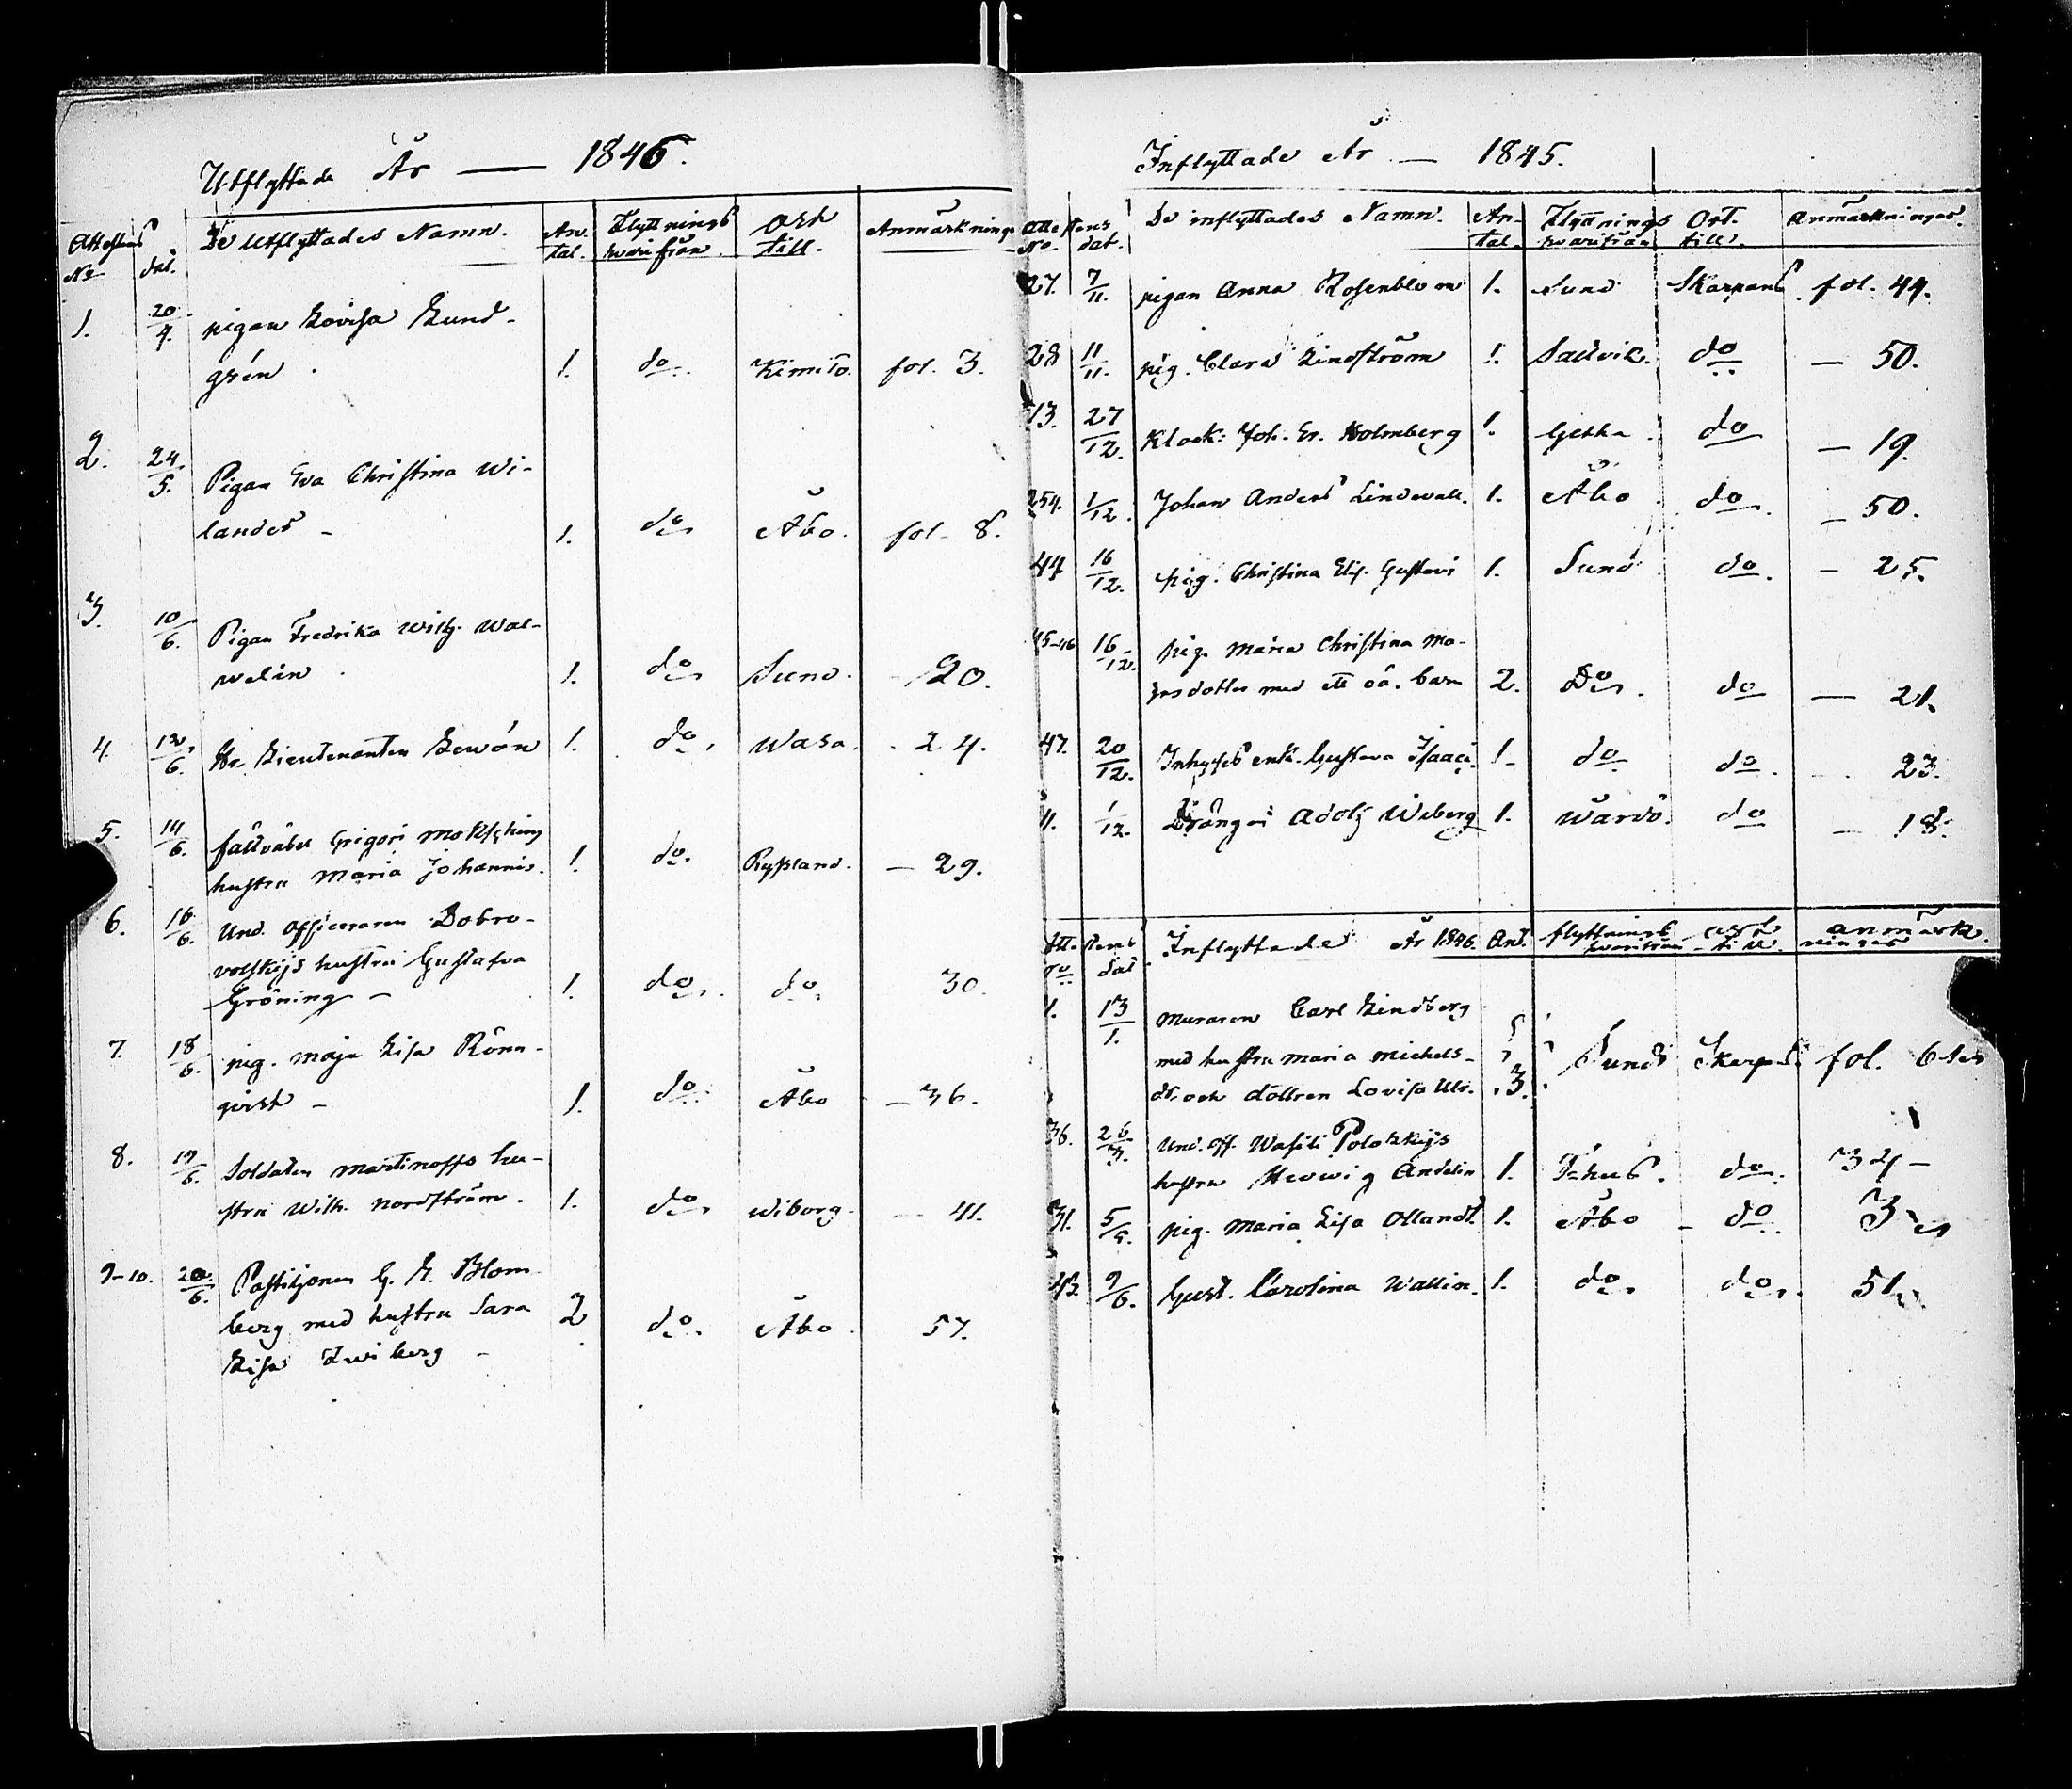 Utflyttade År — 1846.
Attestens No dat. De Utflyttades Namn. An-tal. Flyttnings hvarifrån. Ort till. Anmärkning
1. 20/4. pigan Lovisa Lund-
grén. 1. do Kimito. fol. 3.
2. 24/5. Pigan Eva Christina Wi-
lander - 1. do Åbo. fol. 8.
3. 10/6. Pigan Fredrika Wilh. Wal-
welin. 1. do Sund. 20.
4. 12/6. Hr. Lieutenanten Lewón 1. do. Wasa. - 24.
5. 14/6. fältväbel Grigori
hustru Maria Johannis. 1. do. Ryssland. — 29.
6. 16/6. Und. Officeraren Dobro-
volskijs hustru Gustafva
Gröning - 1. do. do. 30.
7. 18/6. pig. Maja Lisa Rönn-
qvist - 1. do. Åbo — 36.
8. 19/6. Soldaten Martinoffs hu-
stru Wilh. Nordström. 1. do Wiborg. — 41.
9-10. 20/6. Postiljonen G. E. Blom-
berg med hustru Sara
Lisa - 2 do. Åbo. 57.
Inflyttade År — 1845.
Attestens No. dat. De inflyttades Namn. An-tal. Flyttnings hvarifrån Ort. till. Anmärkningar.
27. 7/11. pigan Anna Rosenblom 1. Sund Skarpans fol. 44.
28 11/11. pig. Clara Lindström 1. Saltvik. do — 50.
13. 27/12. Klock: Joh. Er. Holmberg 1. Getha do — 19.
254. 1/12. Johan Anders Lindevall. 1. Åbo do. — 50.
44 16/12. pig. Christina Elis. Gustavi 1. Sund do. — 25.
45-46 16/12. pig. Maria Christina Ma-
tsdotter med ett oä. barn 2. Do. do — 21.
47. 20/12. Inhyses enk. Gustava Isaacs. 1. do do. — 23.
11. 1/12. Drängen Adolf Wiberg 1. Wårdö. do — 18.
Attestens No dat Inflyttade År 1846. Ant. flyttnings hvarifrån ort till anmärkningar
1. 13/1. Muraren Carl Lindberg
med hustru Maria Michels-
dr. och dottren Lovisa Ulr. 3. Sund Skarpans fol. 61
36. Und. off. Wasili Polotzkijs
hustru Hedvig Andelin 1. do. 34 -
31. 5/5. pig. Maria Lisa Ollandt. 1. Åbo - do. 3
43. 9/6. Gust. Carolina Wallin. 1. do. do. 51.